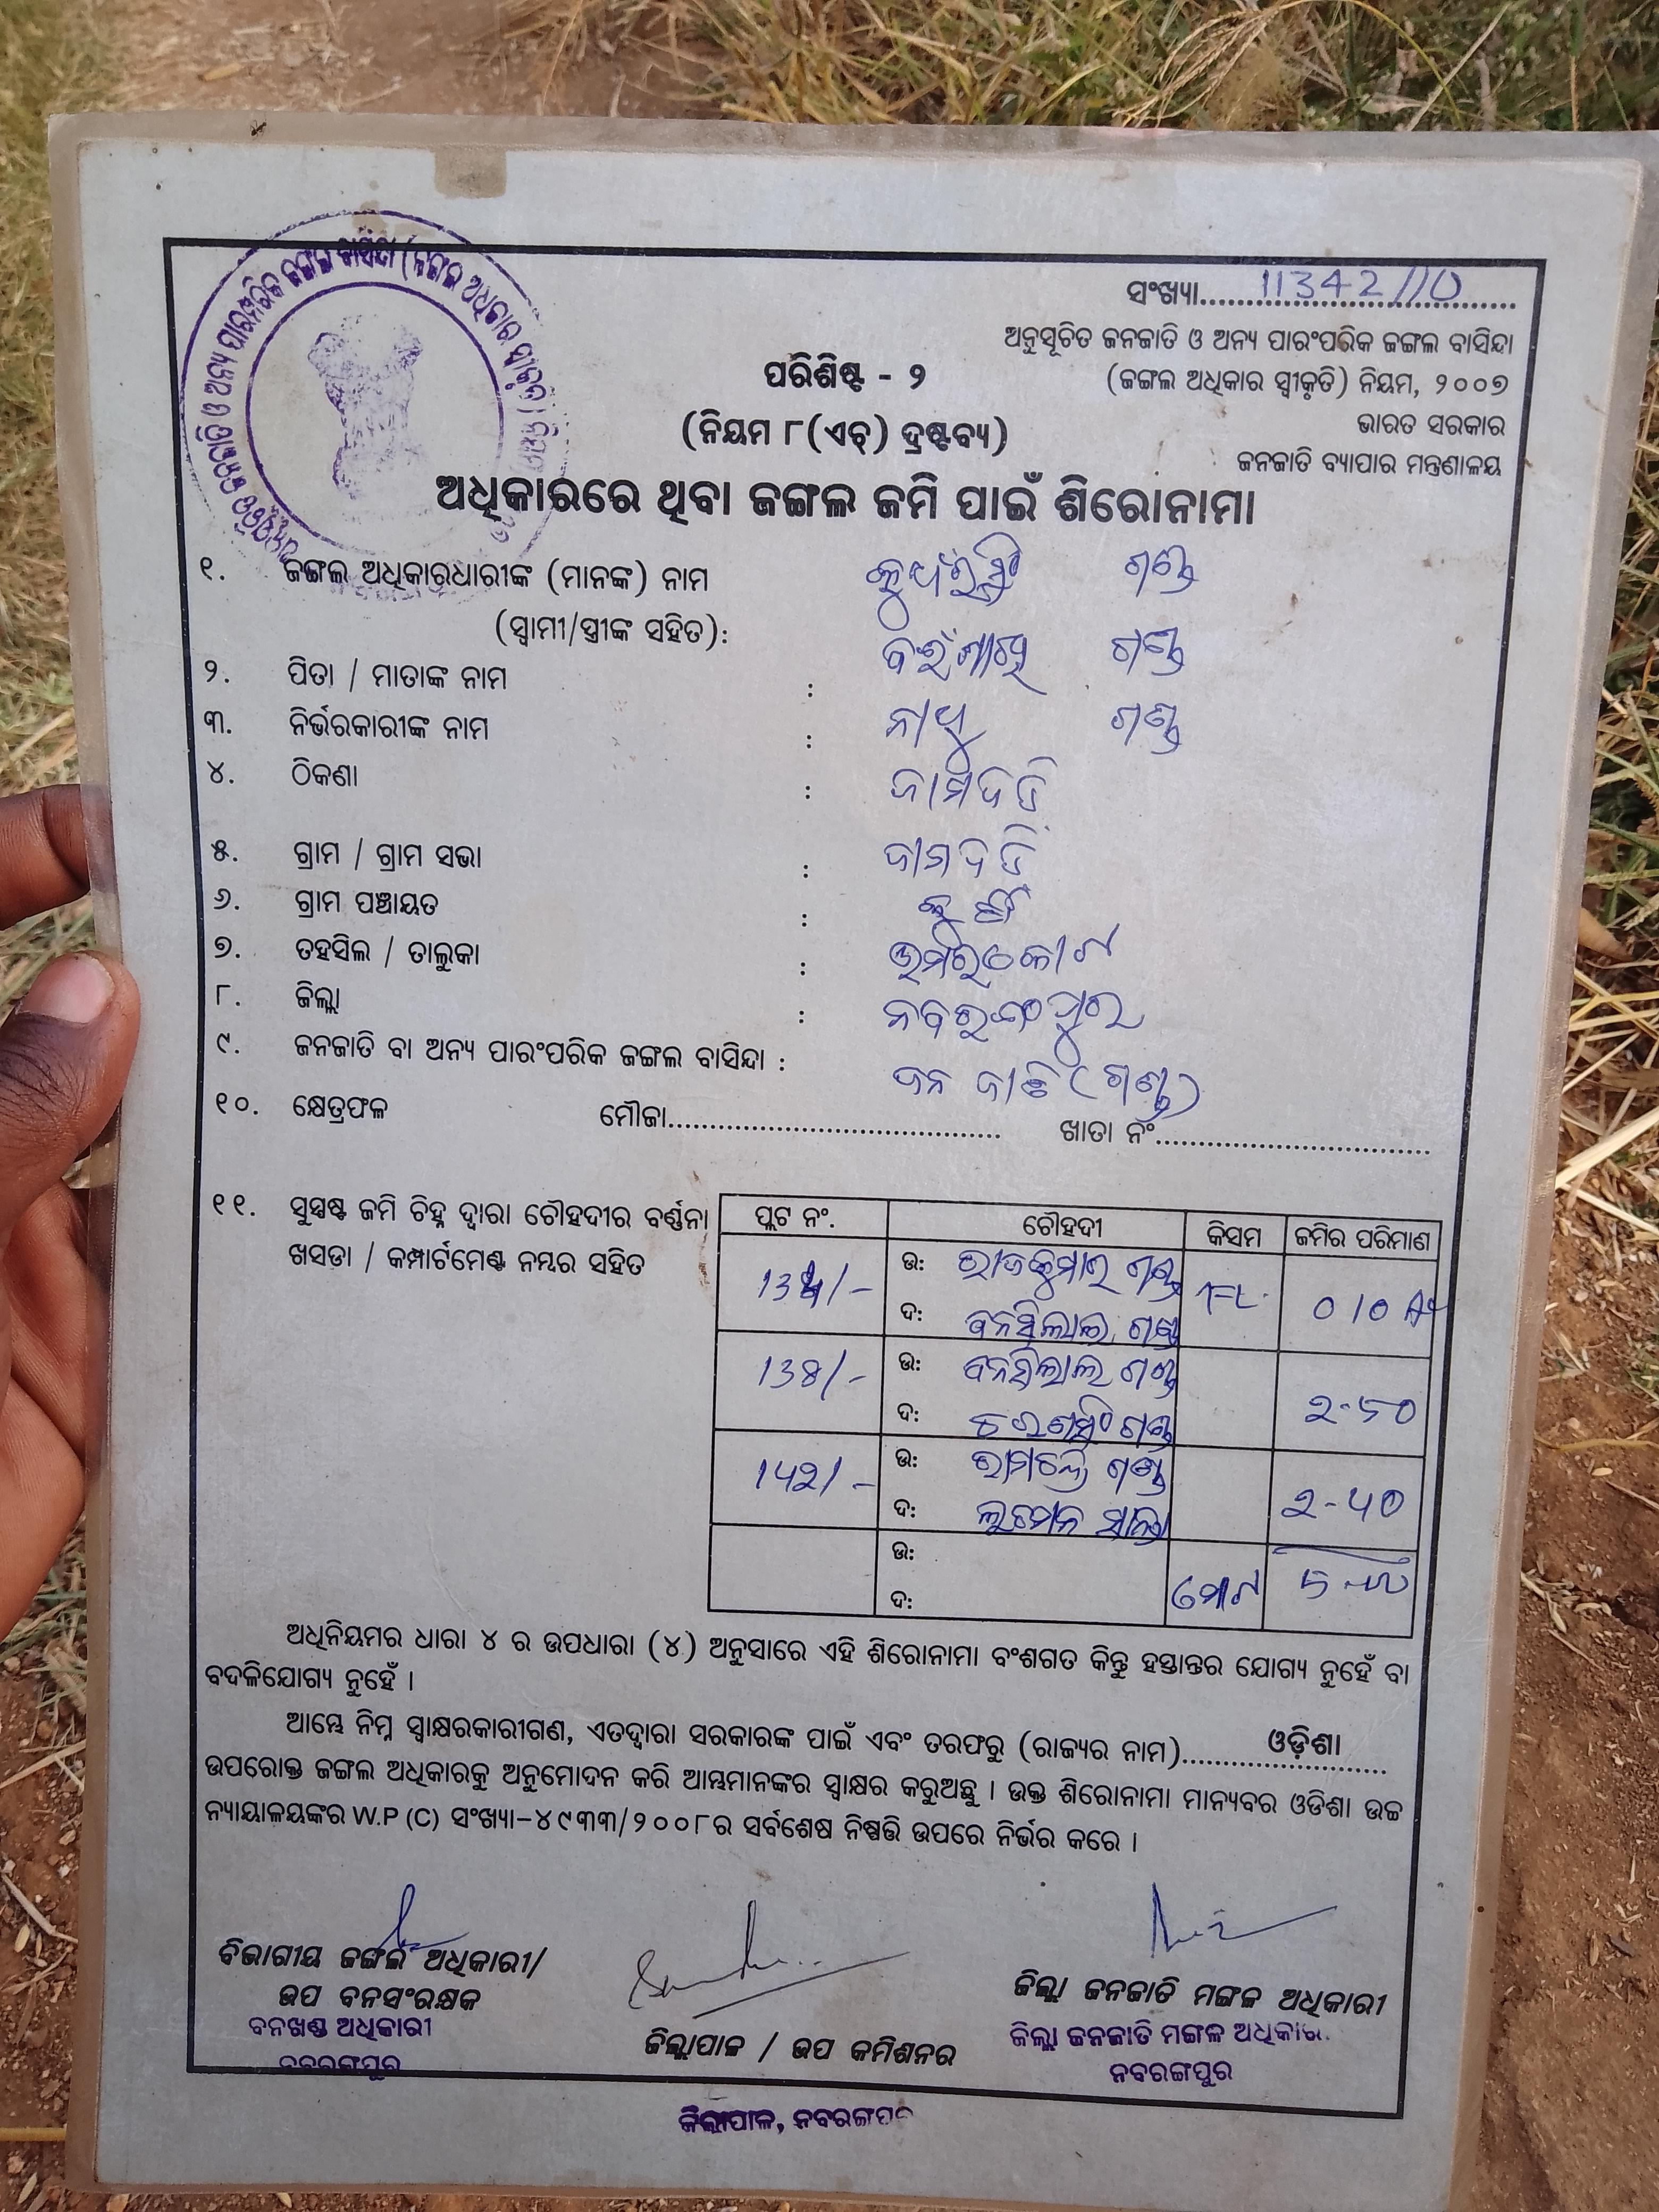 ସଂଖ୍ୟା........11342/10........
ଅନୁସୂଚିତ ଜନଜାତି ଓ ଅନ୍ୟ ପାରଂପରିକ ଜଙ୍ଗଲ ବାସିନ୍ଦା
(ଜଙ୍ଗଲ ଅଧିକାର ସ୍ୱୀକୃତି) ନିୟମ, ୨୦୦୭
ଭାରତ ସରକାର
ଜନଜାତି ବ୍ୟାପାର ମନ୍ତ୍ରଣାଳୟ
ପରିଶିଷ୍ଟ - ୨
(ନିୟମ ୮(ଏଚ୍) ଦ୍ରଷ୍ଟବ୍ୟ)
ଅଧିକାରରେ ଥିବା ଜଙ୍ଗଲ ଜମି ପାଇଁ ଶିରୋନାମା
୧. ଜଙ୍ଗଲ ଅଧିକାରଧାରୀଙ୍କ (ମାନଙ୍କ) ନାମ ଗଣ୍ଡ
(ସ୍ୱାମୀ/ସ୍ତ୍ରୀଙ୍କ ସହିତ):
୨. ପିତା / ମାତାଙ୍କ ନାମ : ଗଣ୍ଡ
୩. ନିର୍ଭରକାରୀଙ୍କ ନାମ : ଗଣ୍ଡ
୪. ଠିକଣା : ଜାମଦଡି
୫. ଗ୍ରାମ / ଗ୍ରାମ ସଭା : ଜାମଦଡି
୬. ଗ୍ରାମ ପଞ୍ଚାୟତ :
୭. ତହସିଲ / ତାଲୁକା : ଉମରକୋଟ
୮. ଜିଲ୍ଲା : ନବରଙ୍ଗପୁର
୯. ଜନଜାତି ବା ଅନ୍ୟ ପାରଂପରିକ ଜଙ୍ଗଲ ବାସିନ୍ଦା : ଜନ ଜାତି (ଗଣ୍ଡ)
୧୦. କ୍ଷେତ୍ରଫଳ ମୌଜା........ ଖାତା ନଂ........
୧୧. ସୁସ୍ପଷ୍ଟ ଜମି ଚିହ୍ନ ଦ୍ୱାରା ଚୌହଦୀର ବର୍ଣ୍ଣନା
ଖସଡା / କମ୍ପାର୍ଟମେଣ୍ଟ ନମ୍ବର ସହିତ
ପ୍ଲଟ ନଂ. ଚୌହଦୀ କିସମ ଜମିର ପରିମାଣ
ଉ: ରାଜକୁମାର ଗଣ୍ଡ
ଦ: ବନସିଲାଲ ଗଣ୍ଡ
ଉ: ବନସିଲାଲ ଗଣ୍ଡ
ଦ: ଚରଣସିଂ ଗଣ୍ଡ
ଉ: ଗଣ୍ଡ
ଦ:
ଉ:
ଦ: ମୋଟ
ଅଧିନିୟମର ଧାରା ୪ ର ଉପଧାରା (୪) ଅନୁସାରେ ଏହି ଶିରୋନାମା ବଂଶଗତ କିନ୍ତୁ ହସ୍ତାନ୍ତର ଯୋଗ୍ୟ ନୁହେଁ ବା
ବଦଳିଯୋଗ୍ୟ ନୁହେଁ ।
ଆମ୍ଭେ ନିମ୍ନ ସ୍ୱାକ୍ଷରକାରୀଗଣ, ଏତଦ୍ୱାରା ସରକାରଙ୍କ ପାଇଁ ଏବଂ ତରଫରୁ (ରାଜ୍ୟର ନାମ)........ଓଡ଼ିଶା........
ଉପରୋକ୍ତ ଜଙ୍ଗଲ ଅଧିକାରକୁ ଅନୁମୋଦନ କରି ଆମ୍ଭମାନଙ୍କର ସ୍ୱାକ୍ଷର କରୁଅଛୁ । ଉକ୍ତ ଶିରୋନାମା ମାନ୍ୟବର ଓଡିଶା ଉଚ୍ଚ
ନ୍ୟାୟାଳୟଙ୍କର W.P (C) ସଂଖ୍ୟା–୪୯୩୩/୨୦୦୮ର ସର୍ବଶେଷ ନିଷ୍ପତ୍ତି ଉପରେ ନିର୍ଭର କରେ ।
ବିଭାଗୀୟ ଜଙ୍ଗଲ ଅଧିକାରୀ/
ଉପ ବନସଂରକ୍ଷକ
ବନଖଣ୍ଡ ଅଧିକାରୀ
ନବରଙ୍ଗପୁର
ଜିଲ୍ଲାପାଳ / ଉପ କମିଶନର
ଜିଲ୍ଲାପାଳ, ନବରଙ୍ଗପୁର
ଜିଲ୍ଲା ଜନଜାତି ମଙ୍ଗଳ ଅଧିକାରୀ
ଜିଲ୍ଲା ଜନଜାତି ମଙ୍ଗଳ ଅଧିକାରୀ
ନବରଙ୍ଗପୁର